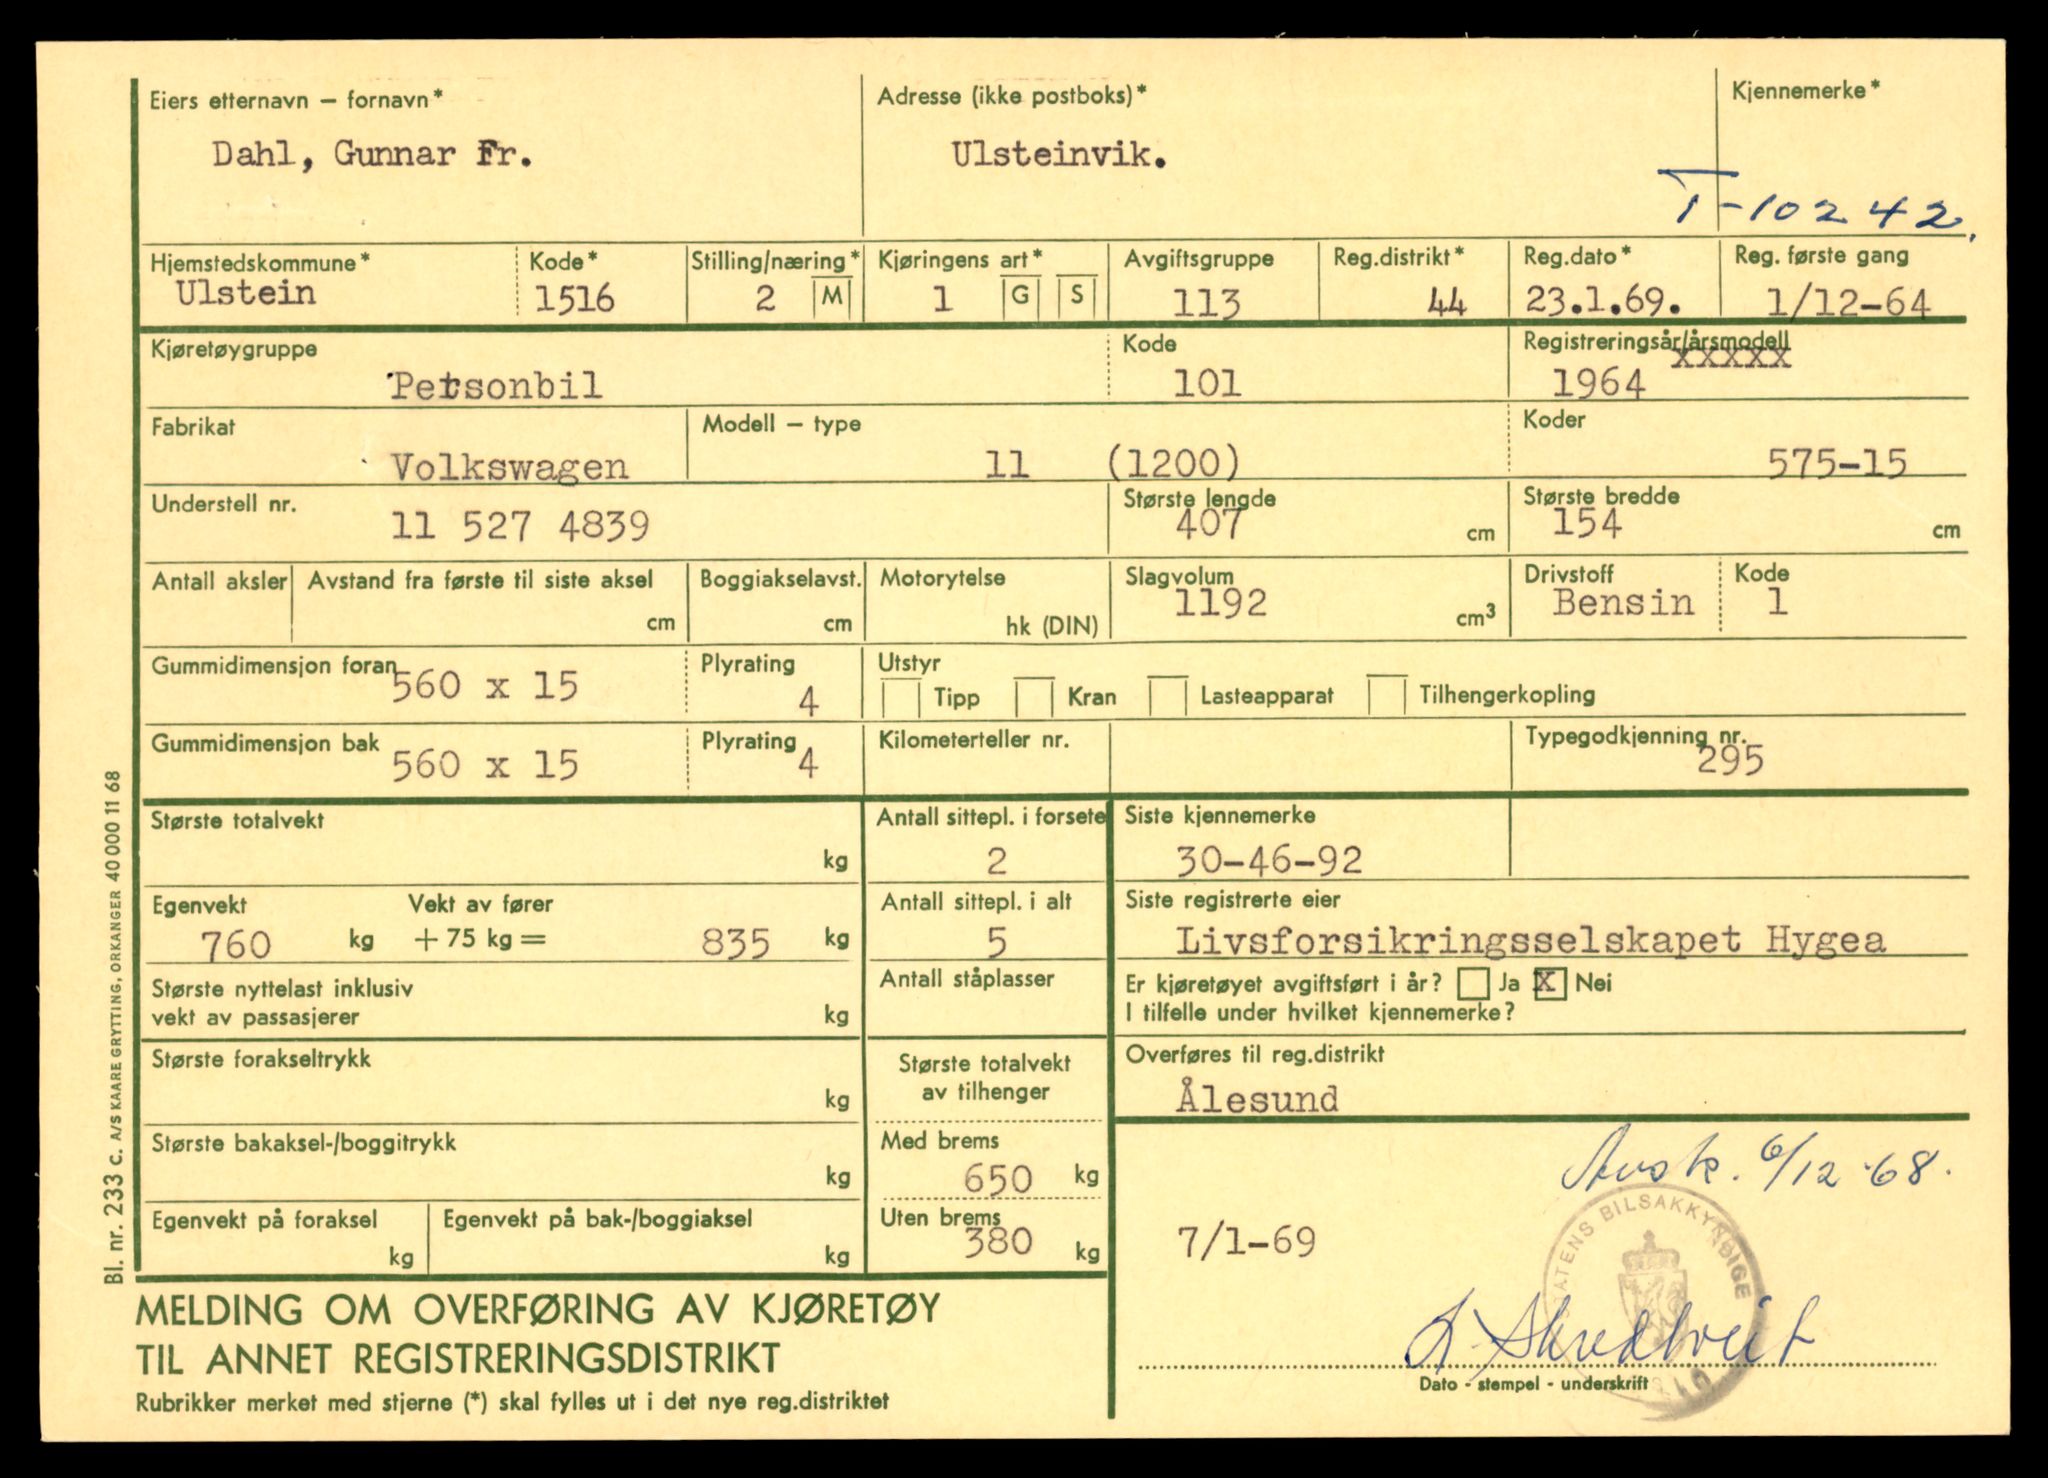 Eiers etternavn – fornavn*
Dahl, Gunnar Fr.
Adresse (ikke postboks)*
Ulsteinvik.
Kjennemerke*
T-10242.
Hjemstedskommune*
Ulstein
Kode*
1516
Stilling/næring*
2 M
Kjøringens art*
1 G S
Avgiftsgruppe
113
Reg.distrikt*
44
Reg.dato*
23.1.69.
Reg. første gang
1/12-64
Kjøretøygruppe
Personbil
Kode
101
Registreringsår/årsmodell
xxxxx
1964
Fabrikat
Volkswagen
Modell – type
11 (1200)
Koder
575-15
Understell nr.
11 527 4839
Største lengde
407 cm
Største bredde
154 cm
Antall aksler
Avstand fra første til siste aksel
cm
Boggiakselavst.
cm
Motorytelse
hk (DIN)
Slagvolum
1192 cm³
Drivstoff
Bensin
Kode
1
Gummidimensjon foran
560 x 15
Plyrating
4
Utstyr
Tipp Kran Lasteapparat Tilhengerkopling
Gummidimensjon bak
560 x 15
Plyrating
4
Kilometerteller nr.
Typegodkjenning nr.
295
Største totalvekt
kg
Antall sittepl. i forsete
2
Siste kjennemerke
30-46-92
Egenvekt
760 kg
Vekt av fører
+ 75 kg = 835 kg
Antall sittepl. i alt
5
Siste registrerte eier
Livsforsikringsselskapet Hygea
Største nyttelast inklusiv
vekt av passasjerer kg
Antall ståplasser
Er kjøretøyet avgiftsført i år? Ja X Nei
I tilfelle under hvilket kjennemerke?
Største forakseltrykk
kg
Største totalvekt
av tilhenger
Overføres til reg.distrikt
Ålesund
Største bakaksel-/boggitrykk
kg
Med brems
650 kg
Avsk. 6/12-68.
Egenvekt på foraksel
kg
Egenvekt på bak-/boggiaksel
kg
Uten brems
380 kg
7/1-69
STATENS BILSAKKYNDIGE
MELDING OM OVERFØRING AV KJØRETØY
TIL ANNET REGISTRERINGSDISTRIKT
Rubrikker merket med stjerne (*) skal fylles ut i det nye reg.distriktet
Dato - stempel - underskrift
Bl. nr. 233 c. A/S KAARE GRYTTING, ORKANGER 40 000 11 68